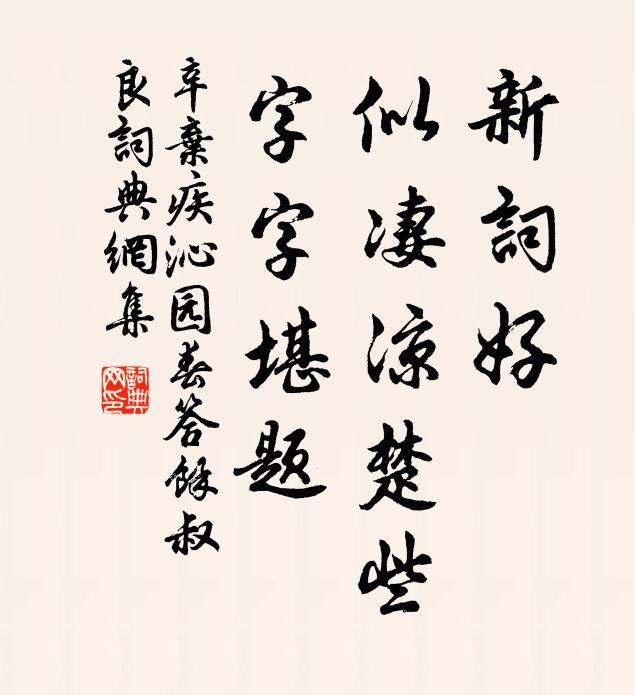 新詞好
似凄凉楚些
字字堪题
辛棄疾沁园春答餘叔
良詞典網集
詞典网印